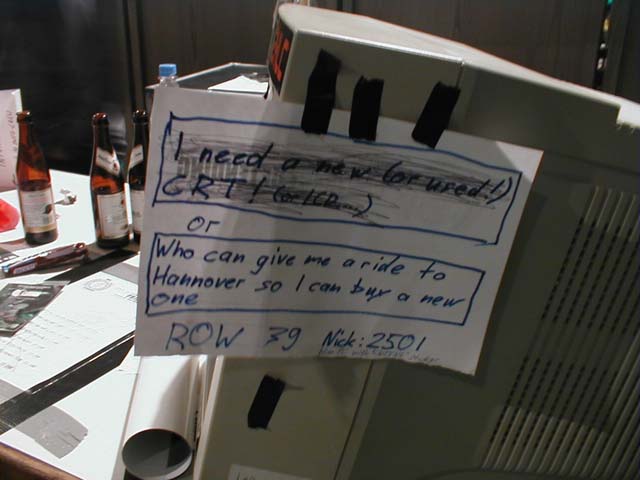 I need a new (or used!)
CRT! (or LCD....)
or
Who can give me a ride to
Hannover so I can buy a new
one
ROW 39 Nick: 2501